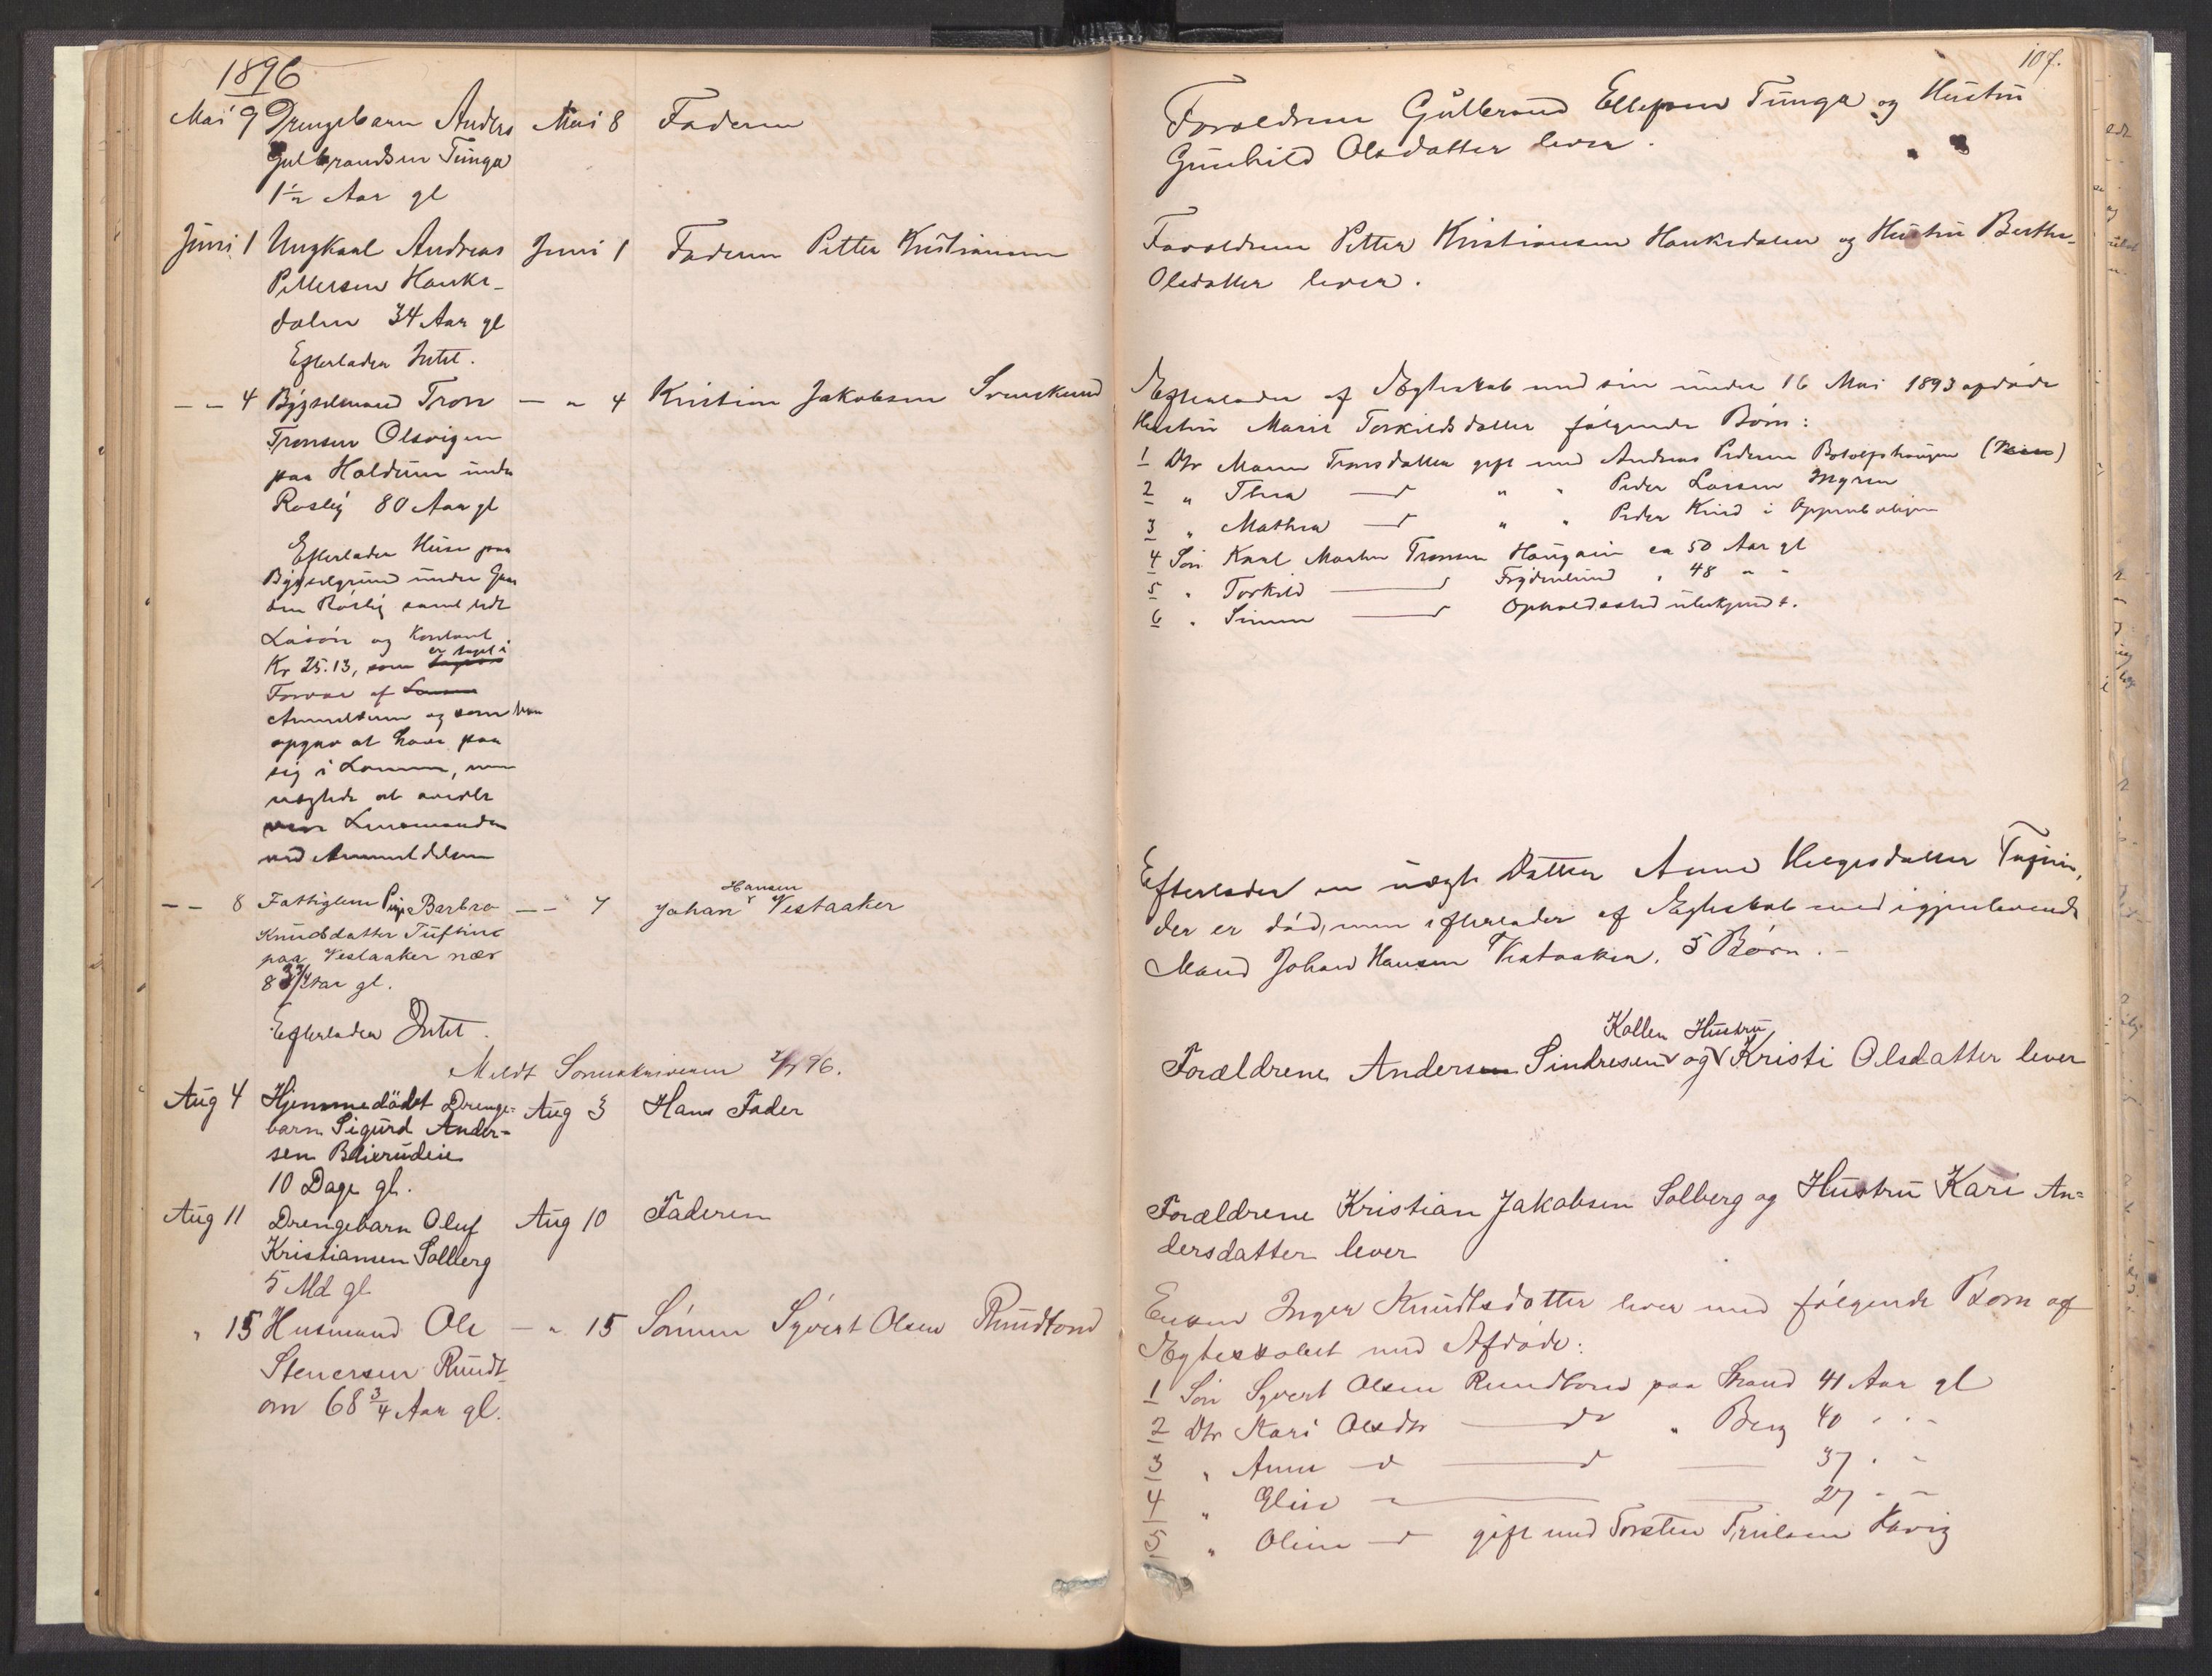 1896
Mai 9 Drengebarn Anders Mai 8 Faderen
Gulbrandsen Tunga
1½ Aar gl
Juni 1 Ungkarl Andreas Juni 1 Faderen Petter Kristiansen
Pettersen Hanke-
dalen 34 Aar gl
Efterlader Intet.
— „ 4 Bygselmand Tron — „ 4 Kristian Jakobsen
Tronsen Olsvigen
paa Haldum under
Roslig 80 Aar gl
Efterlader Huse paa
Bygselgrund under Gaar
den Røslig samt lidt
Løsøre og Kontant
er taget i
Kr 25.13, som
Forvar af
Anmelderen og som han
opgav at have paa
sig i Lommen, men
nægtede at
Lensmanden
ved Anmeldelsen
— – 8 Fattiglem Pige Barbro — – 7 Johan Hansen Vestaaker
Knudsdatter Tuftin
paa Vestaaker nær
83 3/4 Aar gl.
Efterlader Intet.
Meldt Sorenskriveren 96.
Aug 4 Hjemmedødt Drenge- Aug 3 Hans Fader
barn Sigurd Ander-
sen
10 Dage gl.
Aug 11 Drengebarn Oluf Aug 10 Faderen
Kristiansen Solberg
5 Md gl
„ 15 Husmand Ole — „ 15 Sønnen Syvert Olsen Rundtom
Stenersen Rundt-
om 68 3/4 Aar gl.
107.
Forældrene Gulbrand Ellefsen Tunga og Hustru
Gunhild Olsdatter lever.
Forældrene Petter Kristiansen Hankedalen og Hustru Berthe
Olsdatter lever.
Efterlader af Ægteskab med sin under 16 Mai 1893 afdøde
Hustru Marie Torkildsdatter følgende Børn:
1 Dtr Maren Tronsdatter gift med Andreas Pedersen
2 „ Thea — d „ „ Peder Larsen Myren
3 „ Mathea — d „ „ Peder Kind i
4 Søn Karl Martin Tronsen Haugein ca 50 Aar gl
5 „ Torkild — d Frydenlund „ 48 „ „
6 „ Simen — d Opholdssted ubekjendt.
Efterlader en uægte Datter Anne Helgesdatter
der er død, men efterlader af Ægteskab med igjenlevende
Mand Johan Hansen Vestaaker, 5 Børn.
Kollen Hustru
Forældrene Anders Sindresen og Kristi Olsdatter lever
Forældrene Kristian Jakobsen Solberg og Hustru Kari An-
dersdatter lever
Enken Inger Knudtsdatter lever med følgende Børn af
Ægteskabet med Afdøde:
1 Søn Syvert Olsen Rundtom paa Strand 41 Aar gl
2 Dtr Kari Olsdtr — dr „ Berg 40 „ „
3 „ Anne — d — d — 37 „ „
4 „ Elin — 27 „ „
5 „ Oline — d gift med Torsten Trulsen